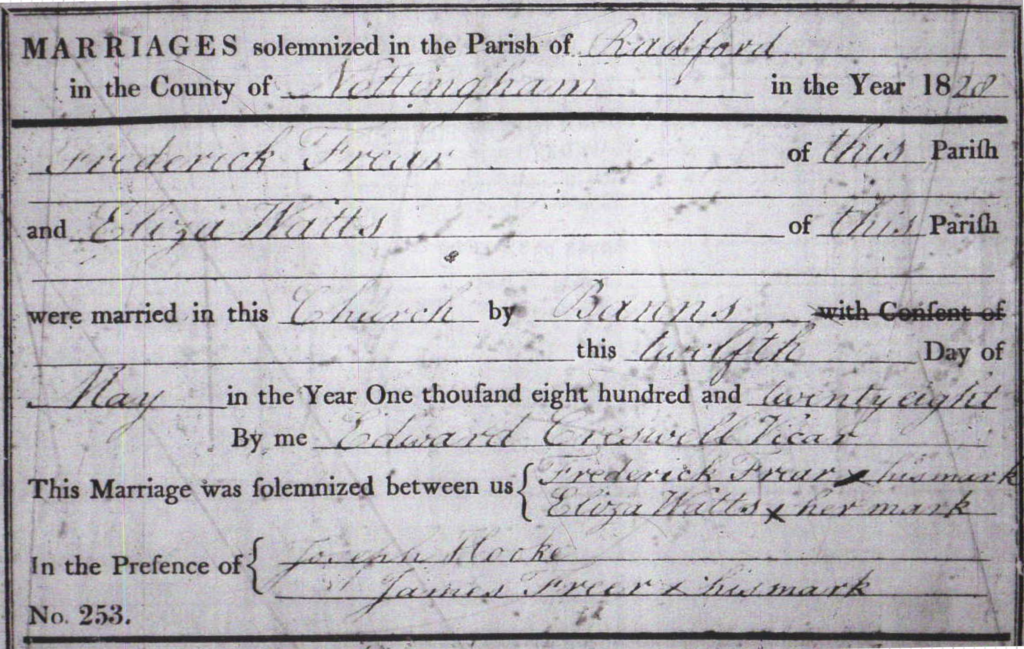 MARRIAGES solemnized in the Parish of Radford
in the County of Nottingham in the Year 1828
Frederick Frear of this Pariſh
and Eliza Watts of this Pariſh
were married in this Church by Banns with Conſent of
this twelfth Day of
May in the Year One thouſand eight hundred and twenty eight
By me Edward Creswell Vicar
This Marriage was ſolemnized between us { Frederick Frear x his mark
Eliza Watts x her mark
In the Preſence of { Joseph Hocke
James Freer x his mark
No. 253.